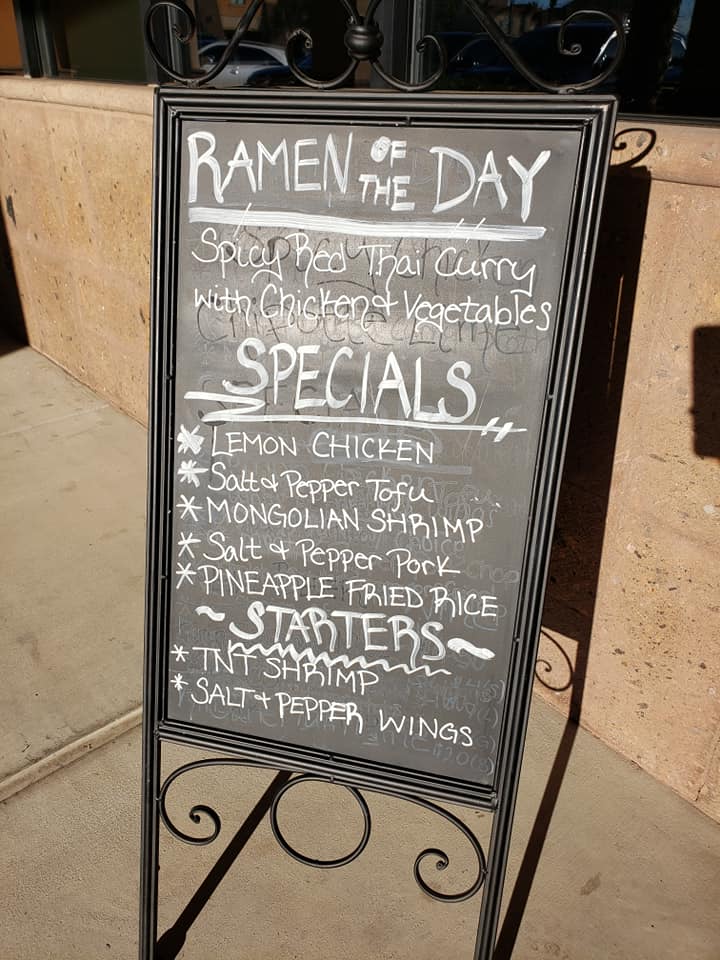 RAMEN OF THE DAY
Spicy Red Thai Curry
with Chicken & Vegetables
SPECIALS
* LEMON CHICKEN
* Salt & Pepper Tofu
* MONGOLIAN SHRIMP
* Salt & Pepper Pork
* PINEAPPLE FRIED RICE
~ STARTERS ~
* TNT SHRIMP
* SALT + PEPPER WINGS